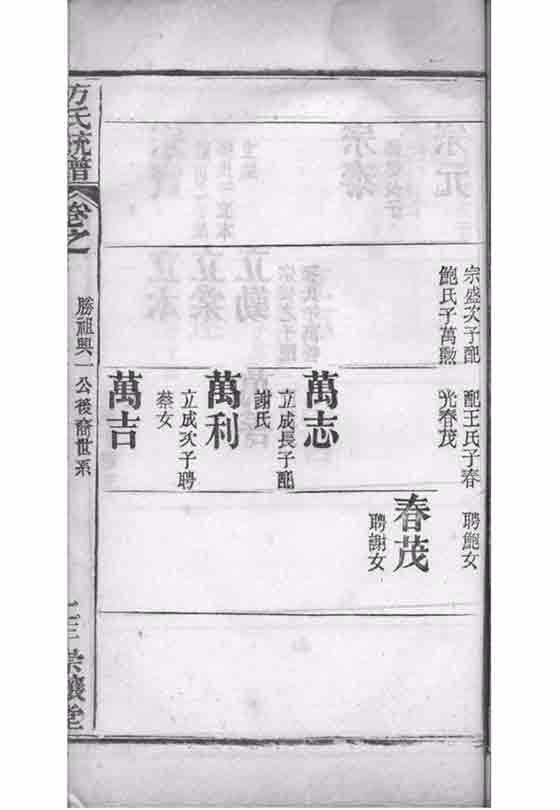 宗盛次子配
鮑氏子萬燞
配王氏子春
光春茂
聘鮑女
春茂
聘謝女
萬志
立成長子配
謝氏
萬利
立成次子聘
蔡女
萬吉
方氏統譜
卷之
勝祖興一公後裔世系